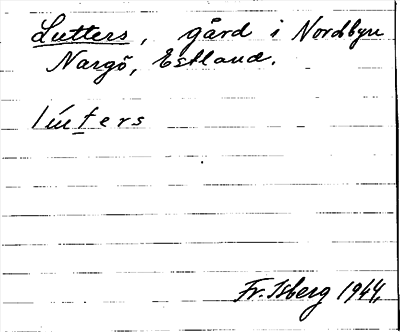 Lutters, gård i Nordbyn
Nargö, Estland.
lúters
Fr. Isberg 1944.